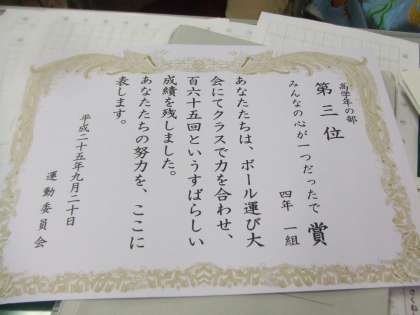 高学年の部
第三位
みんなの心が一つだったで賞
四年 一組
あなたたちは、ボール運び大
会にてクラスで力を合わせ、
百六十五回というすばらしい
成績を残しました。
あなたたちの努力を、ここに
表します。
平成二十五年九月二十日
運動委員会